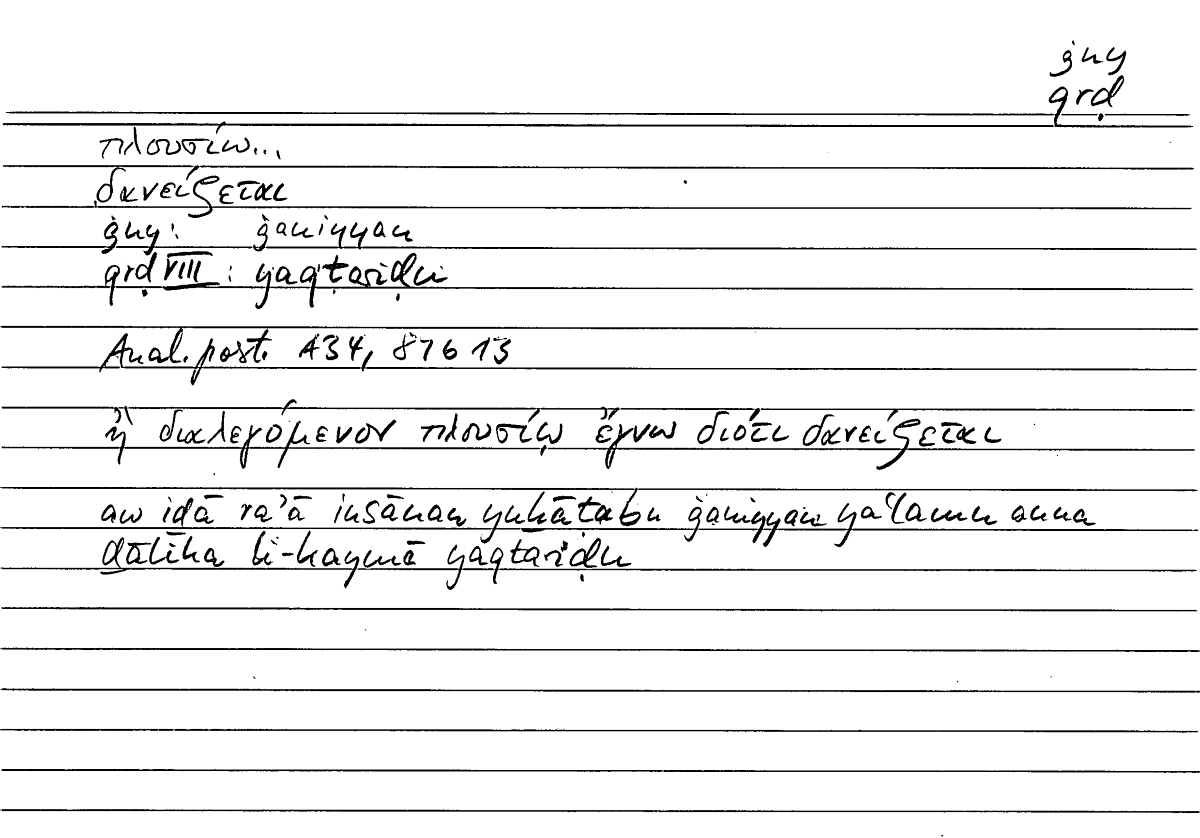 ġny
qrḍ
πλουσίω...
δανείζεται
ġny: ġaniyyan
qrḍ VIII: yaqtariḍu
Anal. post. A34, 89b13
ἢ διαλεγόμενον πλουσίῳ ἔγνω διότι δανείζεται
aw iḏā ra'ā insānan yuḫāṭabu ġaniyyan ya'lamu anna
ḏālika li-kaymā yaqtariḍu